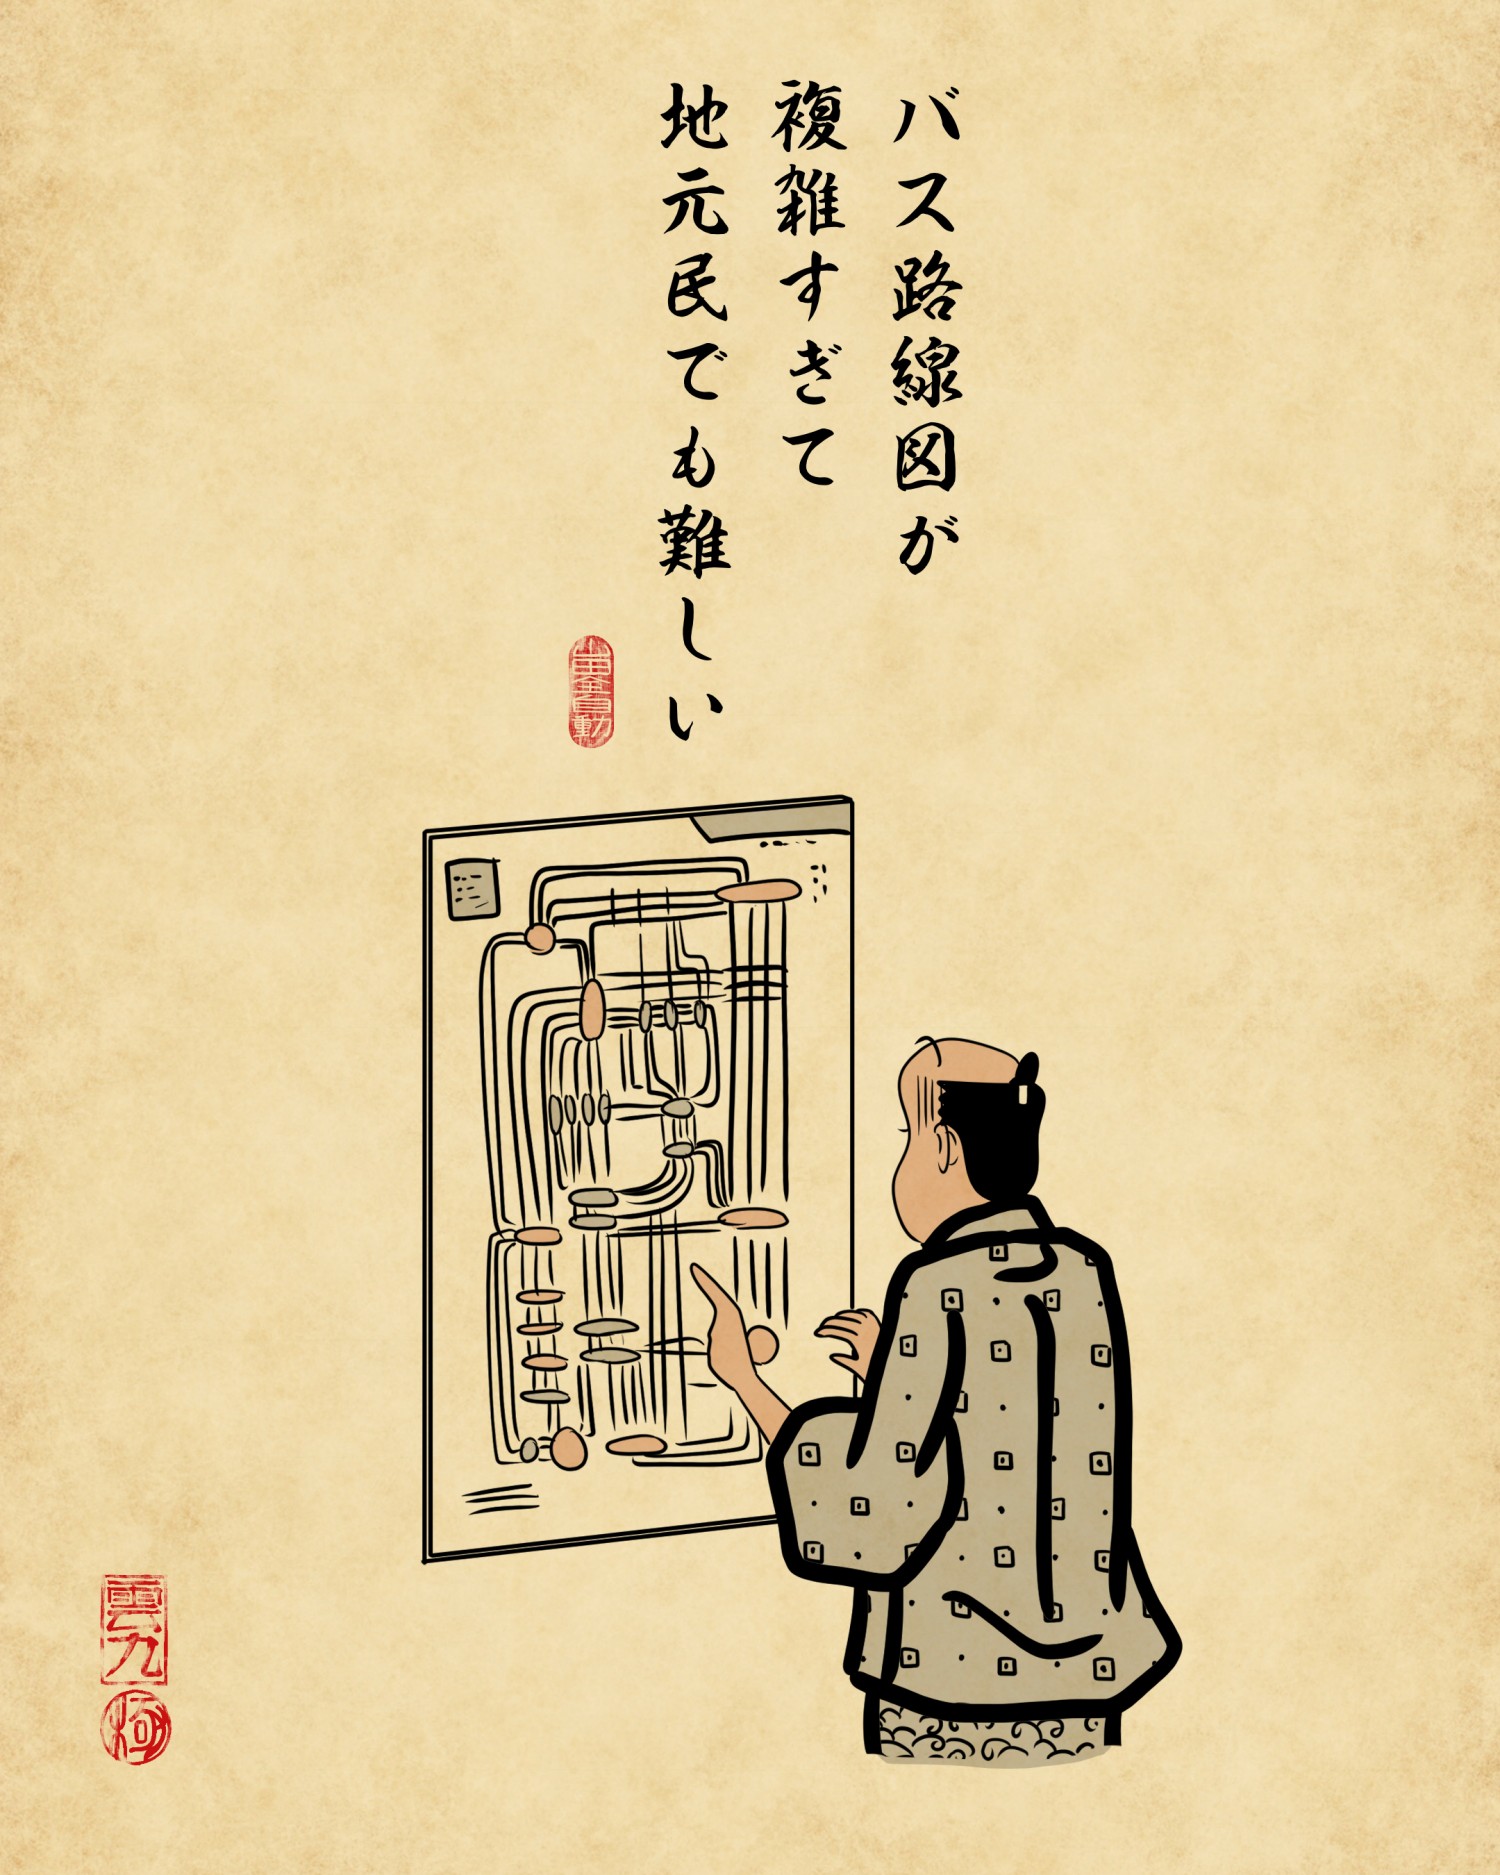 バス路線図が
複雑すぎて
地元民でも難しい